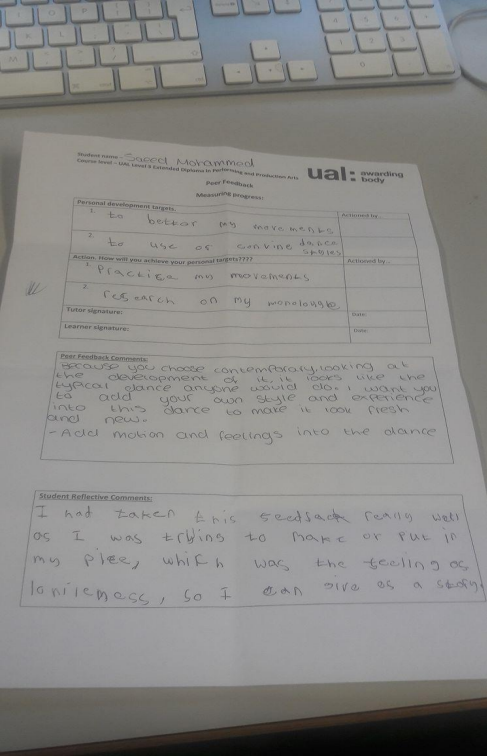 Student name - Saeed Mohammed
Course level - UAL Level 4 Extended Diploma in Performing and Production Arts
ual: awarding body
Peer Feedback
Measuring progress:
Personal development targets.
Actioned by..
1. to better my movements
2. to use or convine dance styles
Action. How will you achieve your personal targets????
Actioned by..
1. Practise my movements
2. research on my monologue
Tutor signature:
Date:
Learner signature:
Date:
Peer Feedback Comments:
because you choose contemporary.looking at
the development of it. it looks like the
typical dance anyone would do. i want you
to add your own style and experience
into this dance to make it look fresh
and new.
- Add motion and feelings into the dance
Student Reflective Comments:
I had taken this seedback really well
as I was trying to make or put in
my piece, which was the feeling os
loniemess, so I can give os a story.